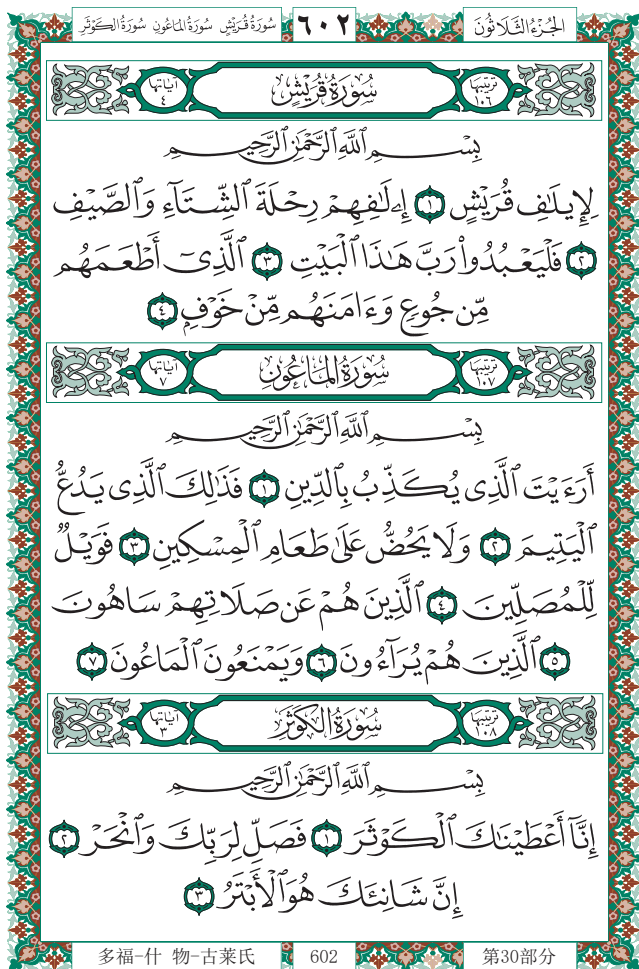 الجُزْءُ الثَّلَاثُونَ ٦٠٢ سُورَةُ قُرَيْشٍ سُورَةُ المَاعُونِ سُورَةُ الكَوْثَرِ
تَرْتِيبُهَا ١٠٦ سُورَةُ قُرَيْشٍ آيَاتُهَا ٤
بِسْمِ ٱللَّهِ ٱلرَّحْمَٰنِ ٱلرَّحِيمِ
لِإِيلَٰفِ قُرَيْشٍ ١ إِۦلَٰفِهِمْ رِحْلَةَ ٱلشِّتَآءِ وَٱلصَّيْفِ
٢ فَلْيَعْبُدُوا۟ رَبَّ هَٰذَا ٱلْبَيْتِ ٣ ٱلَّذِىٓ أَطْعَمَهُم
مِّن جُوعٍ وَءَامَنَهُم مِّنْ خَوْفٍۭ ٤
تَرْتِيبُهَا ١٠٧ سُورَةُ المَاعُونِ آيَاتُهَا ٧
بِسْمِ ٱللَّهِ ٱلرَّحْمَٰنِ ٱلرَّحِيمِ
أَرَءَيْتَ ٱلَّذِى يُكَذِّبُ بِٱلدِّينِ ١ فَذَٰلِكَ ٱلَّذِى يَدُعُّ
ٱلْيَتِيمَ ٢ وَلَا يَحُضُّ عَلَىٰ طَعَامِ ٱلْمِسْكِينِ ٣ فَوَيْلٌ
لِّلْمُصَلِّينَ ٤ ٱلَّذِينَ هُمْ عَن صَلَاتِهِمْ سَاهُونَ
٥ ٱلَّذِينَ هُمْ يُرَآءُونَ ٦ وَيَمْنَعُونَ ٱلْمَاعُونَ ٧
تَرْتِيبُهَا ١٠٨ سُورَةُ الكَوْثَرِ آيَاتُهَا ٣
بِسْمِ ٱللَّهِ ٱلرَّحْمَٰنِ ٱلرَّحِيمِ
إِنَّآ أَعْطَيْنَٰكَ ٱلْكَوْثَرَ ١ فَصَلِّ لِرَبِّكَ وَٱنْحَرْ ٢
إِنَّ شَانِئَكَ هُوَ ٱلْأَبْتَرُ ٣
多福-什 物-古莱氏 602 第30部分